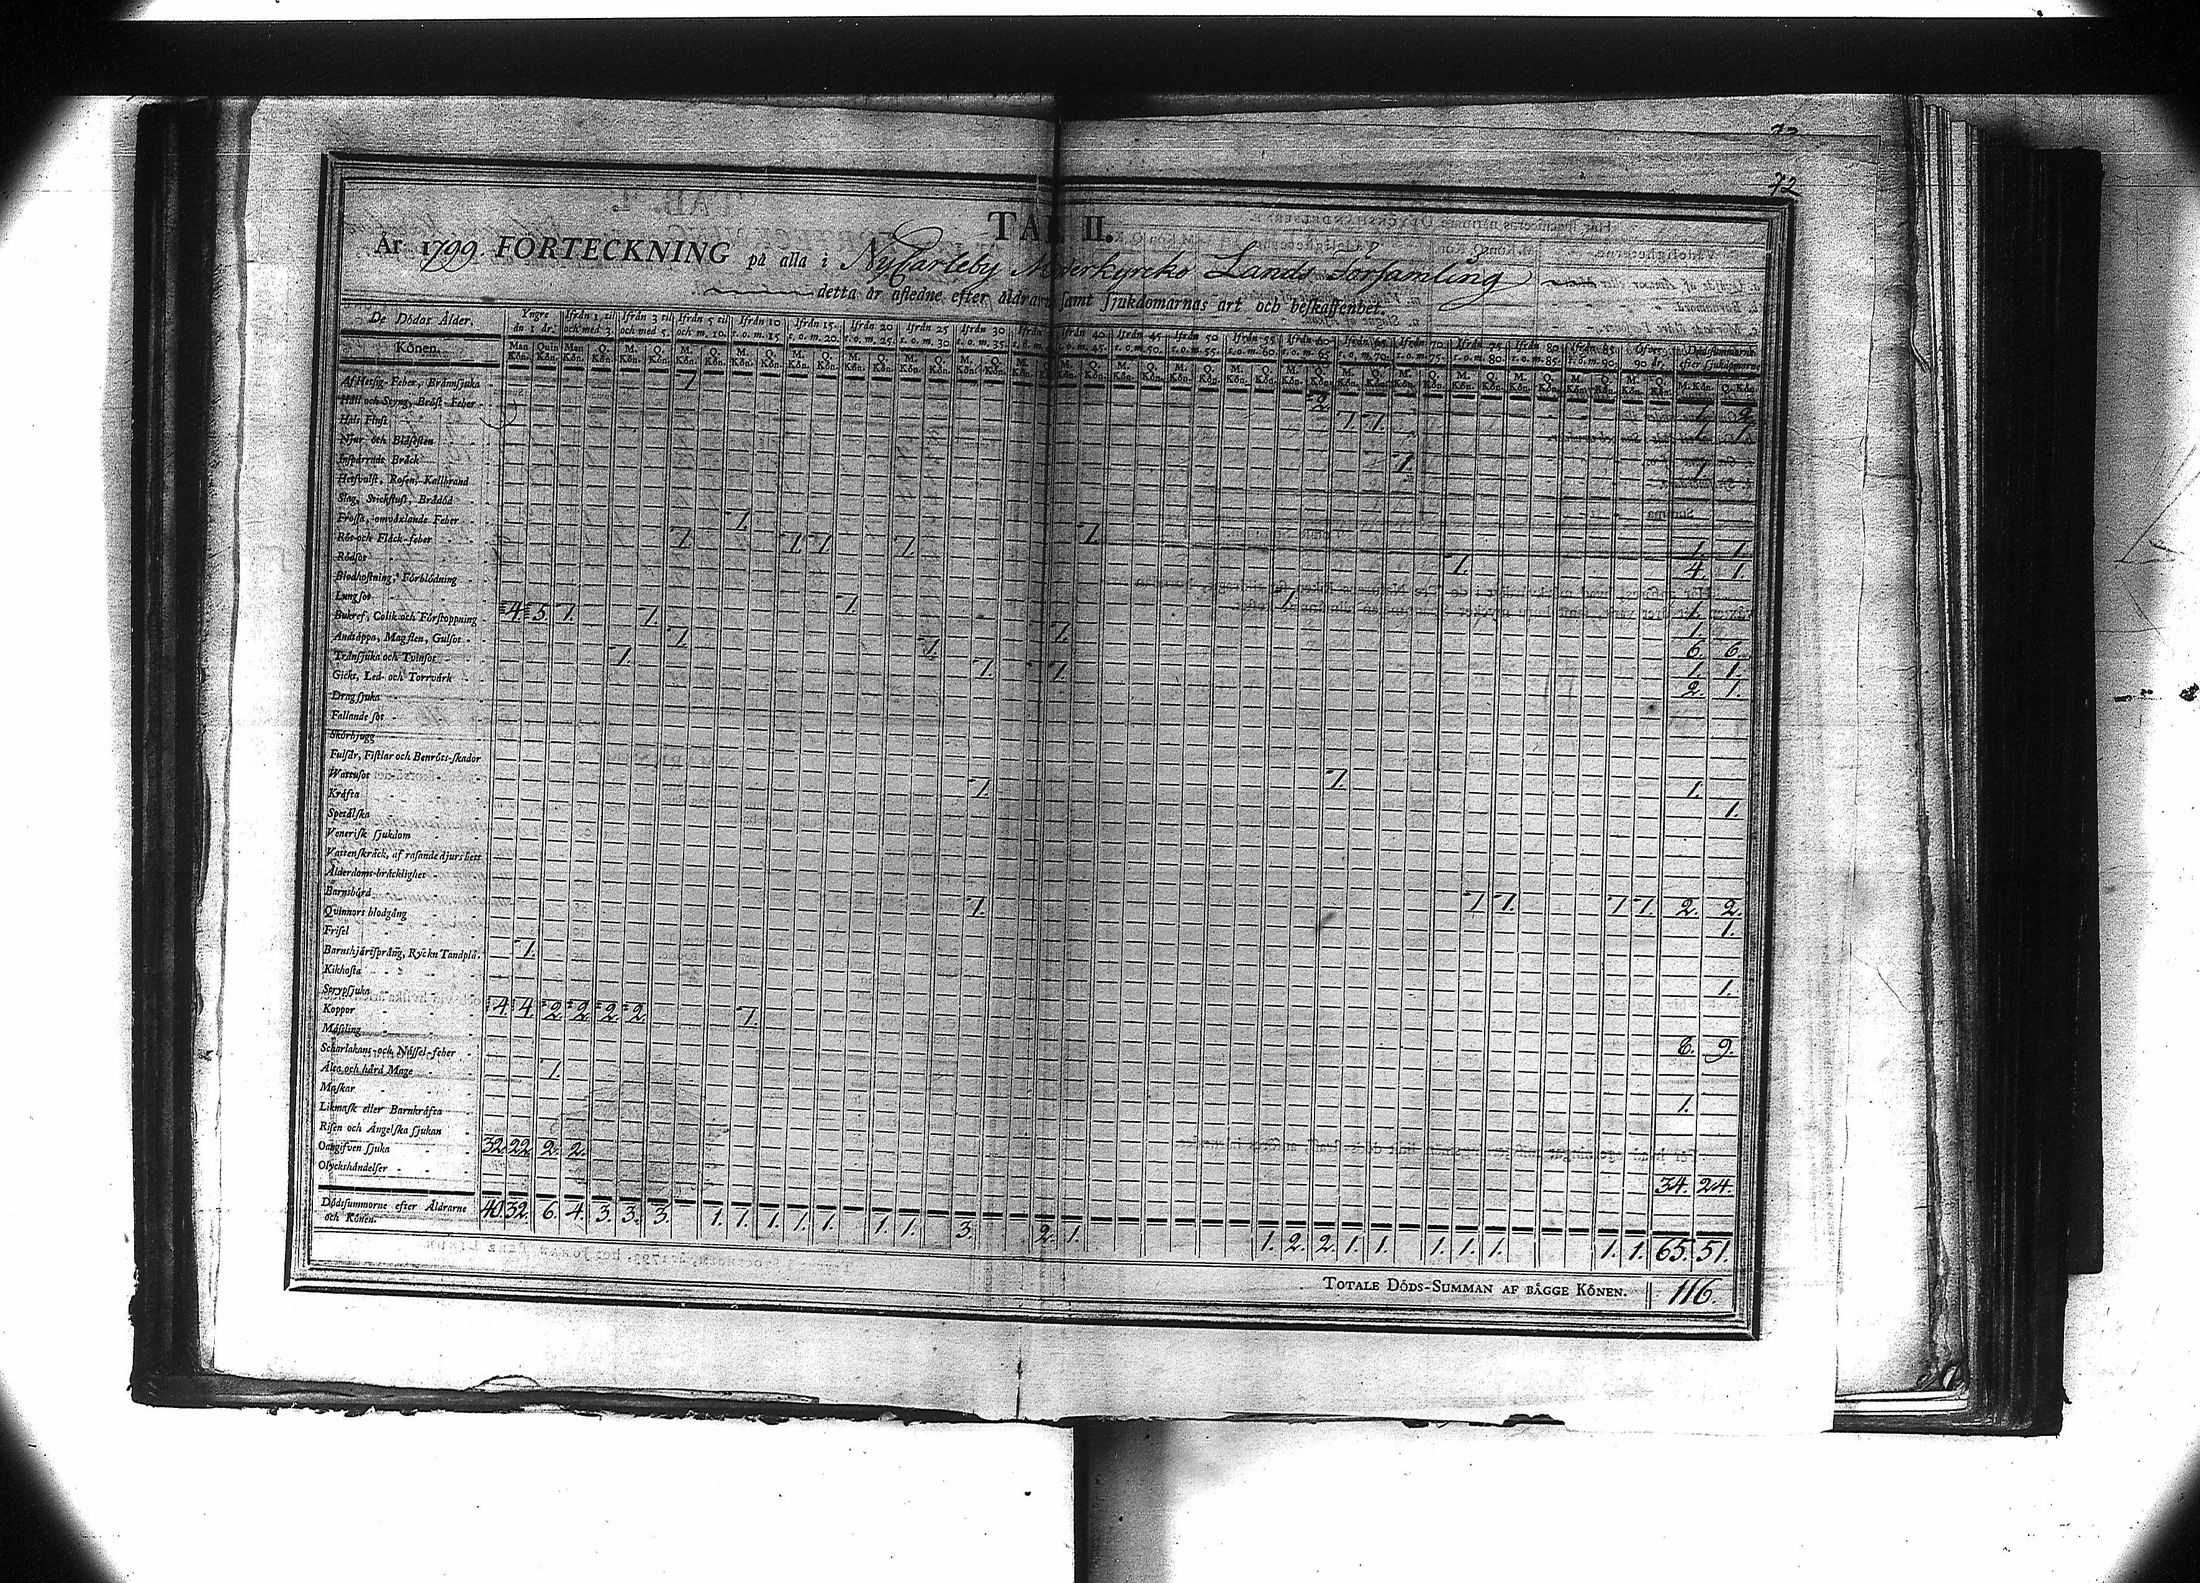 72
TAB. II.
År 1799. FÖRTECKNING på alla i NyCarleby Moderkyrcko Lands Församling
detta år afledne efter åldrarne samt sjukdomarnas art och beskaffenhet.
De Dödas Ålder. Yngre än 1 år. Ifrån 1. til och med 3. Ifrån 3 til och med 5. Ifrån 5 til och m. 10. Ifrån 10 t. o. m. 15 Ifrån 15 t. o. m. 20. Ifrån 20 t. o. m. 25. Ifrån 25 t. o. m. 30 Ifrån 30 t. o. m. 35. Ifrån 40 t. o. m. 45. Ifrån 45 t. o. m. 50. Ifrån 50 t. o. m. 55. Ifrån 55 t. o. m. 60. Ifrån 60 t. o. m. 65 Ifrån 65 t. o. m. 70. Ifrån 70 t. o. m. 75. Ifrån 75 t. o. m. 80. Ifrån 80 t. o. m. 85. Ifrån 85 t. o. m. 90. Öfver 90 år. Dödssummorne efter sjukdomarne
Könen. Man Kön. Quin Kön. Man Kön. Q. Kön. M. Kön. Q. Kön. M. Kön. Q. Kön.
Af Hetsig-Feber, Brännsjuka 1 2 1. 2.
Håll och Styng, Bröst-Feber 1 1 1. 1.
Hals Fluss
Njur och Blåsesten 1 1.
Inspärrade Bråck
Hetsvulst, Rosen, Kallbrand
Slag, Stickfluss, Brådöd
Frossa, omväxlande Feber 1 1 1. 1.
Röt-och Fläck-feber 1 1 1 1 4. 1.
Rödsot 1.
Blodhostning, Förblödning 1.
Lungsot 1 1 1.
Bukref, Colik och Förstoppning 4. 5. 1. 1 6. 6.
Andtäppa, Magsten, Gulsot 1 1 1 1. 1.
Trånsjuka och Tvinsot 1. 1. 1 2. 1.
Gickt, Led- och Torrvärk
Dragsjuka
Fallande sot
Skörbjugg
Fulsår, Fistlar och Benröts-skador
Wattusot 1. 1. 1.
Kräfta 1.
Spetälska
Venerisk sjukdom
Vattenskräck, af rasande djurs bett
Ålderdoms-bräcklighet 1 1. 1 1. 2. 2.
Barnsbörd 1. 1.
Qvinnors blodgång
Frisel
Barnshjärtsprång, Ryckn Tandplå. 1. 1.
Kikhosta
Strypsjuka
Koppor 4. 4. 2. 2. 2. 2. 1. 8. 9.
Mässling
Scharlakans-och Nässel-feber
Älta och hård Mage 1. 1.
Maskar
Likmask eller Barnkräfta
Risen och Ångelska sjukan
Oangifven sjuka 32. 22. 2. 2. 34. 24.
Olyckshändelser
Dödssummorne efter Åldrarne och Könen. 40. 32. 6. 4. 3. 3. 3. 1. 1. 1. 1. 1. 1. 1. 3. 2. 1. 1. 2. 2. 1. 1. 1. 1. 1. 1. 1. 65. 51.
TOTALE DÖDS-SUMMAN AF BÄGGE KÖNEN. 116.